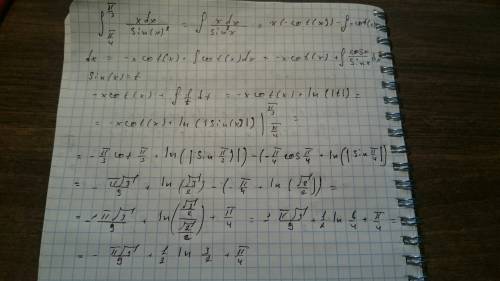 ∫_{π/4}^{π/3} x dx / sin(x)² = ∫ x dx / sin²x = x(-cot(x)) - ∫ -cot(x)
dx = -x cot(x) + ∫ cot(x) dx = -x cot(x) + ∫ cosx / sinx dx
sin(x) = t
-x cot(x) + ∫ 1/t dt = -x cot(x) + ln(|t|) =
= -x cot(x) + ln(|sin(x)|) |_{π/4}^{π/3} =
= -π/3 cot π/3 + ln(|sin π/3|) - (-π/4 cos π/4 + ln(|sin π/4|)
= -π√3/9 + ln(√3/2) - (-π/4 + ln(√2/2)) =
= -π√3/9 + ln((√3/2)/(√2/2)) + π/4 = -π√3/9 + 1/2 ln 6/4 + π/4 =
= -π√3/9 + 1/2 ln 3/2 + π/4